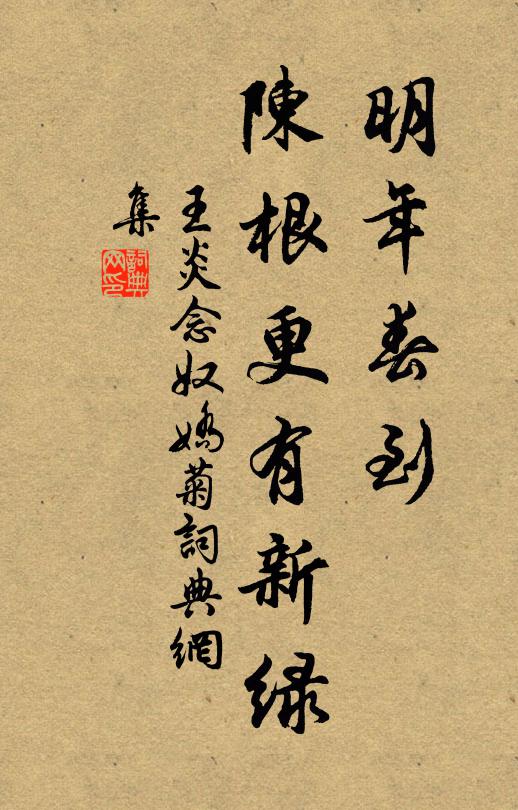 明年春到
陳根更有新緑
王炎念奴嬌菊詞典網
集
詞典網印